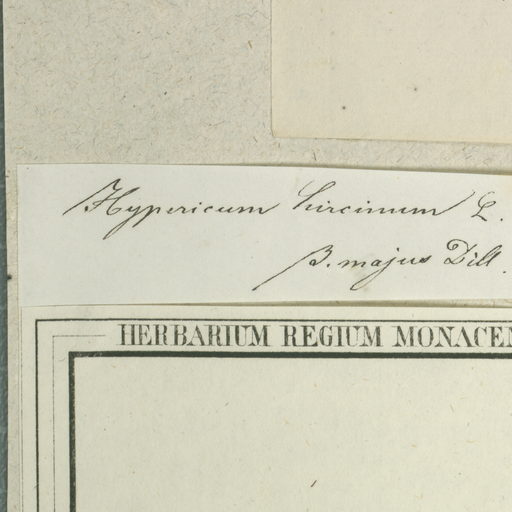 Hypericum hircinum L.
β. majus Dill.
HERBARIUM REGIUM MONACEN